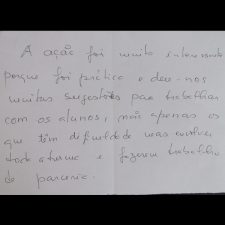 A ação foi muito interessante
porque foi prática e deu-nos
muitas sugestões para trabalhar
com os alunos, não apenas os
que têm dificuldade mas envolver
toda a turma e fazerem trabalho
de parceria.